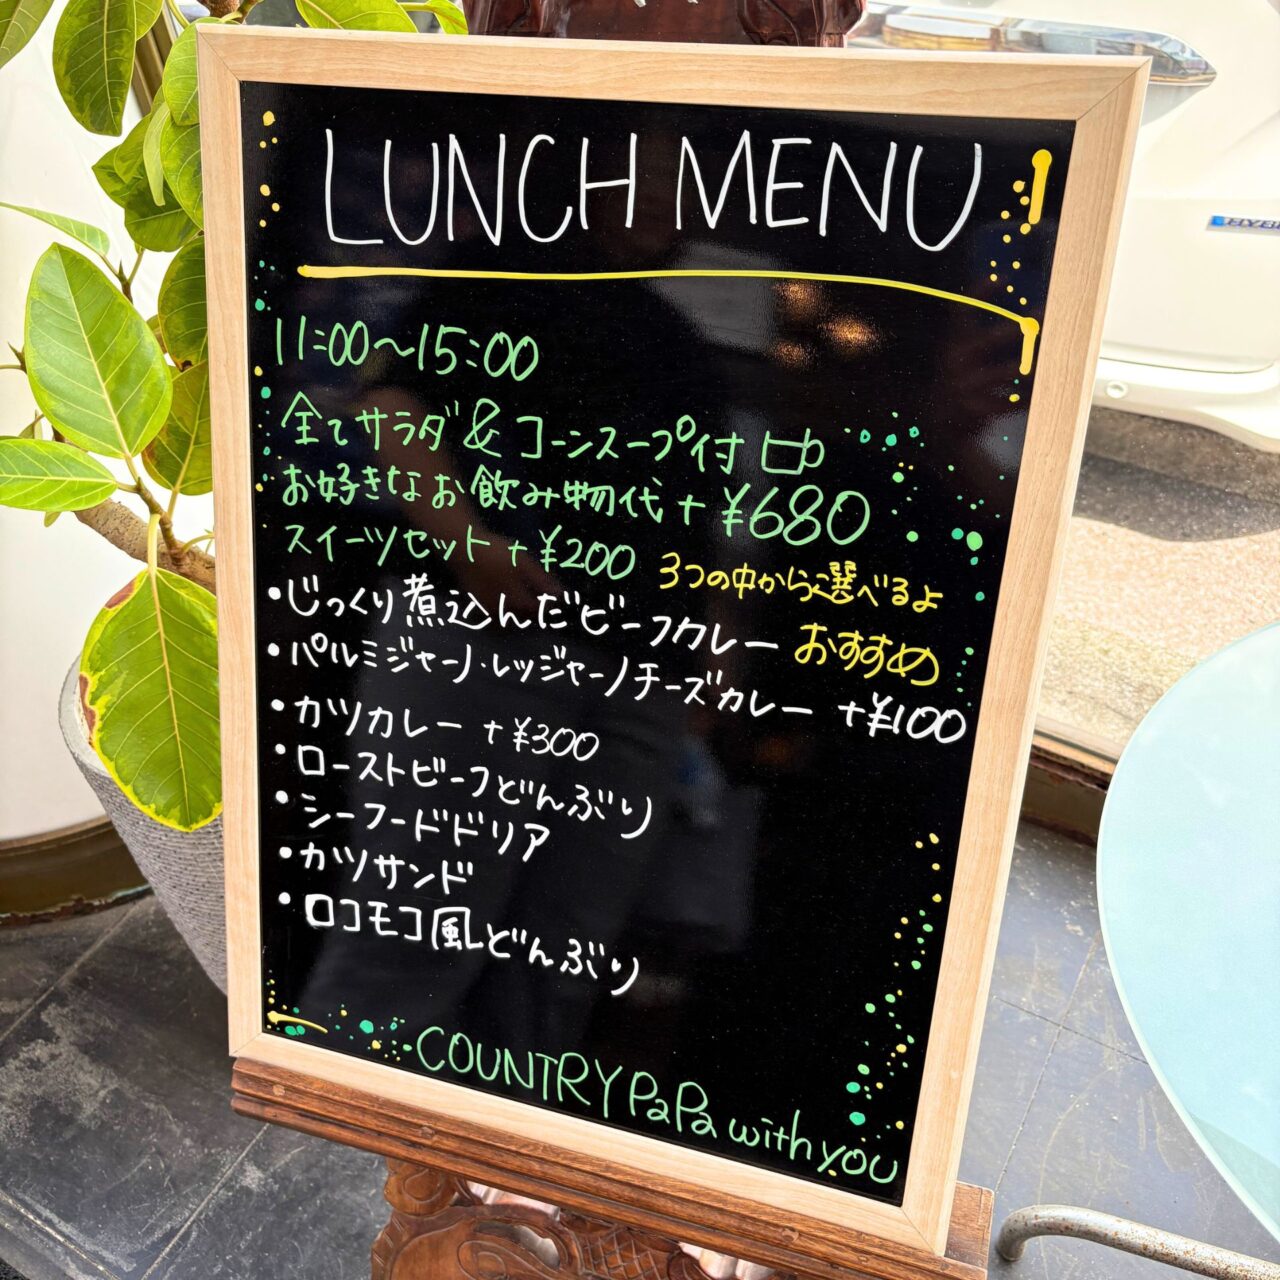 LUNCH MENU
11:00〜15:00
全てサラダ&コーンスープ付
お好きなお飲み物代+¥680
スイーツセット+¥200 3つの中から選べるよ
・じっくり煮込んだビーフカレー おすすめ
・パルミジャーノ・レッジャーノチーズカレー +¥100
・カツカレー +¥300
・ローストビーフどんぶり
・シーフードドリア
・カツサンド
・ロコモコ風どんぶり
COUNTRY PaPa with you